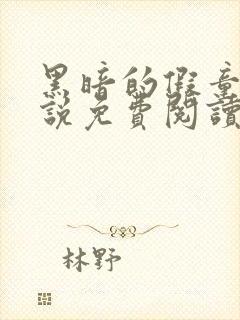 黑暗的假童
說免費閱讀
林野